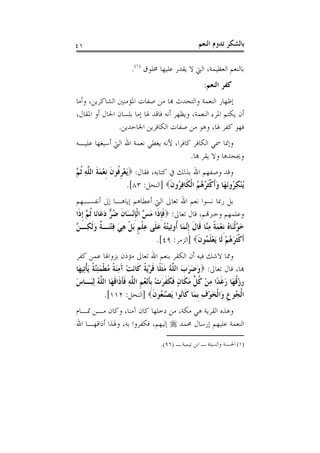 بالشكر تدوم النعم
٤١
بالنعم العظيمة، التي لا يقدر عليها مخلوق (١).
كفر النعم:
إظهار النعمة والتحدث بها من صفات المؤمنين الشاكرين، وأما
أن يكتم المرء النعمة، ويظهر أنه فاقد لها إما بلسان الحال أو المقال،
فهو كفر لها، وهو من صفات الكافرين الجاحدين.
وإنما سمي الكافر كافرا، لأنه يغطي نعمة الله التي أسبغها عليـــه
ويجحدها ولا يقر بها.
وقد وصفهم الله بذلك في كتابه، فقال: ﴿يَعْرِفُونَ نِعْمَةَ اللَّهِ ثُمَّ
يُنْكِرُونَهَا وَأَكْثَرُهُمُ الْكَافِرُونَ﴾ [النحل: ٨٣].
بل ربما نسوا نعم الله تعالى التي أعطاهم إياهـــا إلى أنفســـهم
وعلمهم وخبرتهم، قال تعالى: ﴿فَإِذَا مَسَّ الْإِنْسَانَ ضُرٌّ دَعَانَا ثُمَّ إِذَا
خَوَّلْنَاهُ نِعْمَةً مِنَّا قَالَ إِنَّمَا أُوتِيتُهُ عَلَى عِلْمٍ بَلْ هِيَ فِتْنَةٌ وَلَكِنَّ
أَكْثَرَهُمْ لَا يَعْلَمُونَ﴾ [الزمر: ٤٩].
ومما لاشك فيه أن الكفر بنعم الله تعالى مؤذن بزوالها عمن كفر
بها، قال تعالى: ﴿وَضَرَبَ اللَّهُ مَثَلًا قَرْيَةً كَانَتْ آمِنَةً مُطْمَئِنَّةً يَأْتِيهَا
رِزْقُهَا رَغَدًا مِنْ كُلِّ مَكَانٍ فَكَفَرَتْ بِأَنْعُمِ اللَّهِ فَأَذَاقَهَا اللَّهُ لِبَاسَ
الْجُوعِ وَالْخَوْفِ بِمَا كَانُوا يَصْنَعُونَ﴾ [النحل: ١١٢].
وهذه القرية هي مكة، من دخلها كان آمنا، وكان مـــن تمـــام
النعمة عليهم إرسال محمد ﷺ إليهم، فكفروا به، ولهذا أذاقهـــا الله
(١) الحسنة والسيئة ــ ابن تيمية ــ (٩٦).